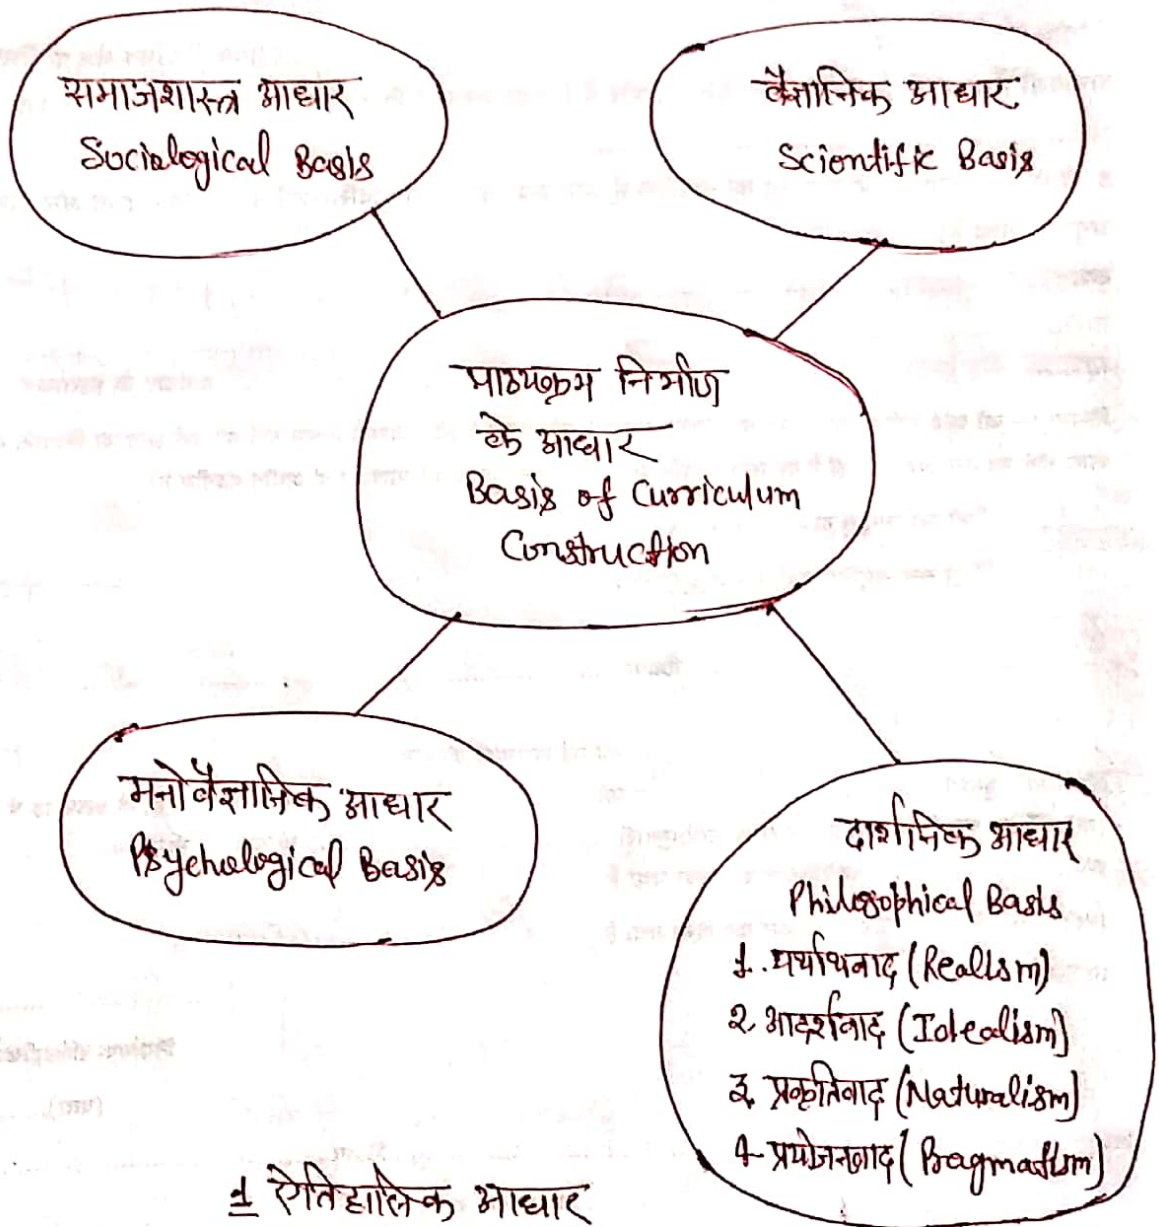 समाजशास्त्र आधार
Sociological Basis
वैज्ञानिक आधार
Scientific Basis
पाठ्यक्रम निर्माण
के आधार
Basis of Curriculum
Construction
मनोवैज्ञानिक आधार
Psychological Basis
दार्शनिक आधार
Philosophical Basis
1. यर्थाथवाद (Realism)
2. आदर्शवाद (Idealism)
3. प्रकृतिवाद (Naturalism)
4- प्रयोजनवाद (Pragmatism)
1 ऐतिहासिक आधार